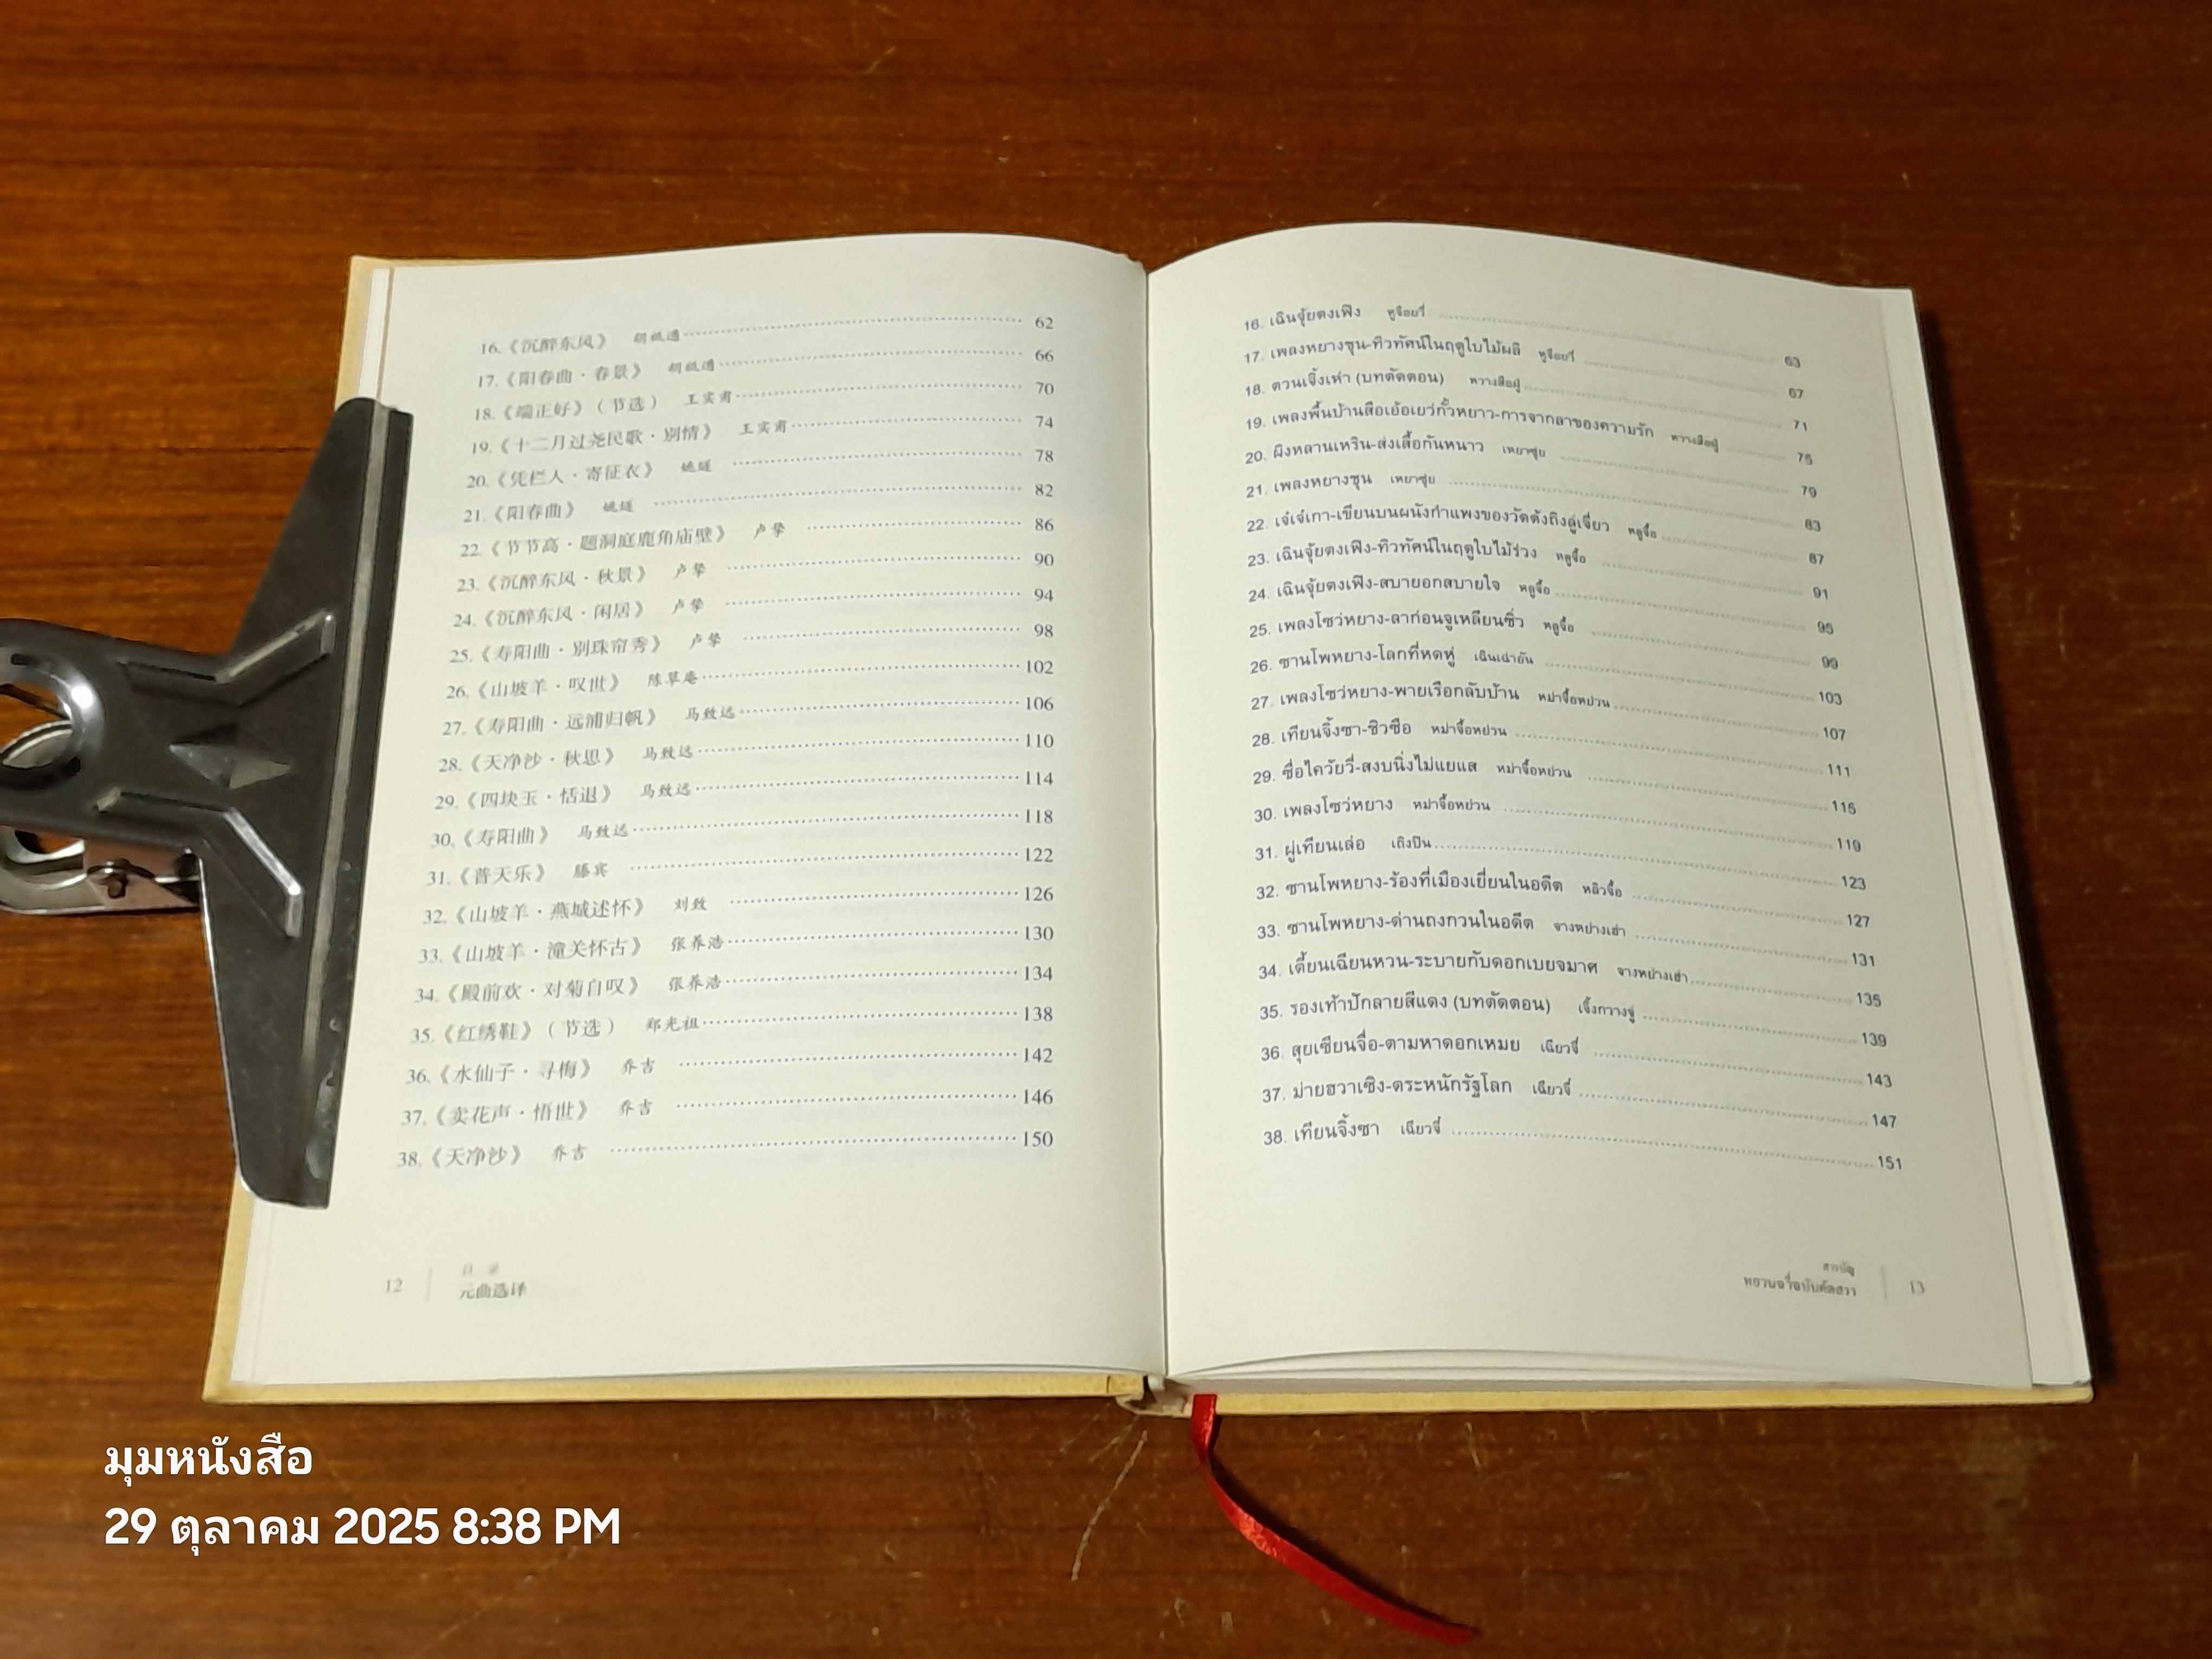 16.《沉醉东风》 胡祗遹 62
17.《阳春曲·春景》 胡祗遹 66
18.《端正好》（节选） 王实甫 70
19.《十二月过尧民歌·别情》 王实甫 74
20.《凭栏人·寄征衣》 姚燧 78
21.《阳春曲》 姚燧 82
22.《节节高·题洞庭鹿角庙壁》 卢挚 86
23.《沉醉东风·秋景》 卢挚 90
24.《沉醉东风·闲居》 卢挚 94
25.《寿阳曲·别珠帘秀》 卢挚 98
26.《山坡羊·叹世》 陈草庵 102
27.《寿阳曲·远浦归帆》 马致远 106
28.《天净沙·秋思》 马致远 110
29.《四块玉·恬退》 马致远 114
30.《寿阳曲》 马致远 118
31.《普天乐》 滕宾 122
32.《山坡羊·燕城述怀》 刘致 126
33.《山坡羊·潼关怀古》 张养浩 130
34.《殿前欢·对菊自叹》 张养浩 134
35.《红绣鞋》（节选） 郑光祖 138
36.《水仙子·寻梅》 乔吉 142
37.《卖花声·悟世》 乔吉 146
38.《天净沙》 乔吉 150
目 录
12 元曲选译
16. เฉินจุ้ยตงเฟิง หูจือยวี่ 63
17. เพลงหยางชุน-ทิวทัศน์ในฤดูใบไม้ผลิ หูจือยวี่ 67
18. ตวนเจิ้งเห่า (บทตัดตอน) หวางสือฝู่ 71
19. เพลงพื้นบ้านสือเอ้อเยว่กั้วหยาว-การจากลาของความรัก หวางสือฝู่ 75
20. ผิงหลานเหริน-ส่งเสื้อกันหนาว เหยาซุ่ย 79
21. เพลงหยางชุน เหยาซุ่ย 83
22. เจ๋เจ๋เกา-เขียนบนผนังกำแพงของวัดต้งถิงลู่เจี่ยว หลูจื้อ 87
23. เฉินจุ้ยตงเฟิง-ทิวทัศน์ในฤดูใบไม้ร่วง หลูจื้อ 91
24. เฉินจุ้ยตงเฟิง-สบายอกสบายใจ หลูจื้อ 95
25. เพลงโซว่หยาง-ลาก่อนจูเหลียนซิ่ว หลูจื้อ 99
26. ซานโพหยาง-โลกที่หดหู่ เฉินเฉ่าอัน 103
27. เพลงโซว่หยาง-พายเรือกลับบ้าน หม่าจื้อหย่วน 107
28. เทียนจิ้งซา-ชิวซือ หม่าจื้อหย่วน 111
29. ซื่อไควัยวี่-สงบนิ่งไม่แยแส หม่าจื้อหย่วน 115
30. เพลงโซว่หยาง หม่าจื้อหย่วน 119
31. ผู่เทียนเล่อ เถิงปิน 123
32. ซานโพหยาง-ร้องที่เมืองเยี่ยนในอดีต หลิวจื้อ 127
33. ซานโพหยาง-ด่านถงกวนในอดีต จางหย่างเฮ่า 131
34. เตี้ยนเฉียนหวน-ระบายกับดอกเบยจมาศ จางหย่างเฮ่า 135
35. รองเท้าปักลายสีแดง (บทตัดตอน) เจิ้งกวางจู่ 139
36. สุยเซียนจื่อ-ตามหาดอกเหมย เฉียวจี๋ 143
37. ม่ายฮวาเซิง-ตระหนักรัฐโลก เฉียวจี๋ 147
38. เทียนจิ้งซา เฉียวจี๋ 151
สารบัญ
หยวนฉวี่ฉบับคัดสรร 13
มุมหนังสือ
29 ตุลาคม 2025 8:38 PM